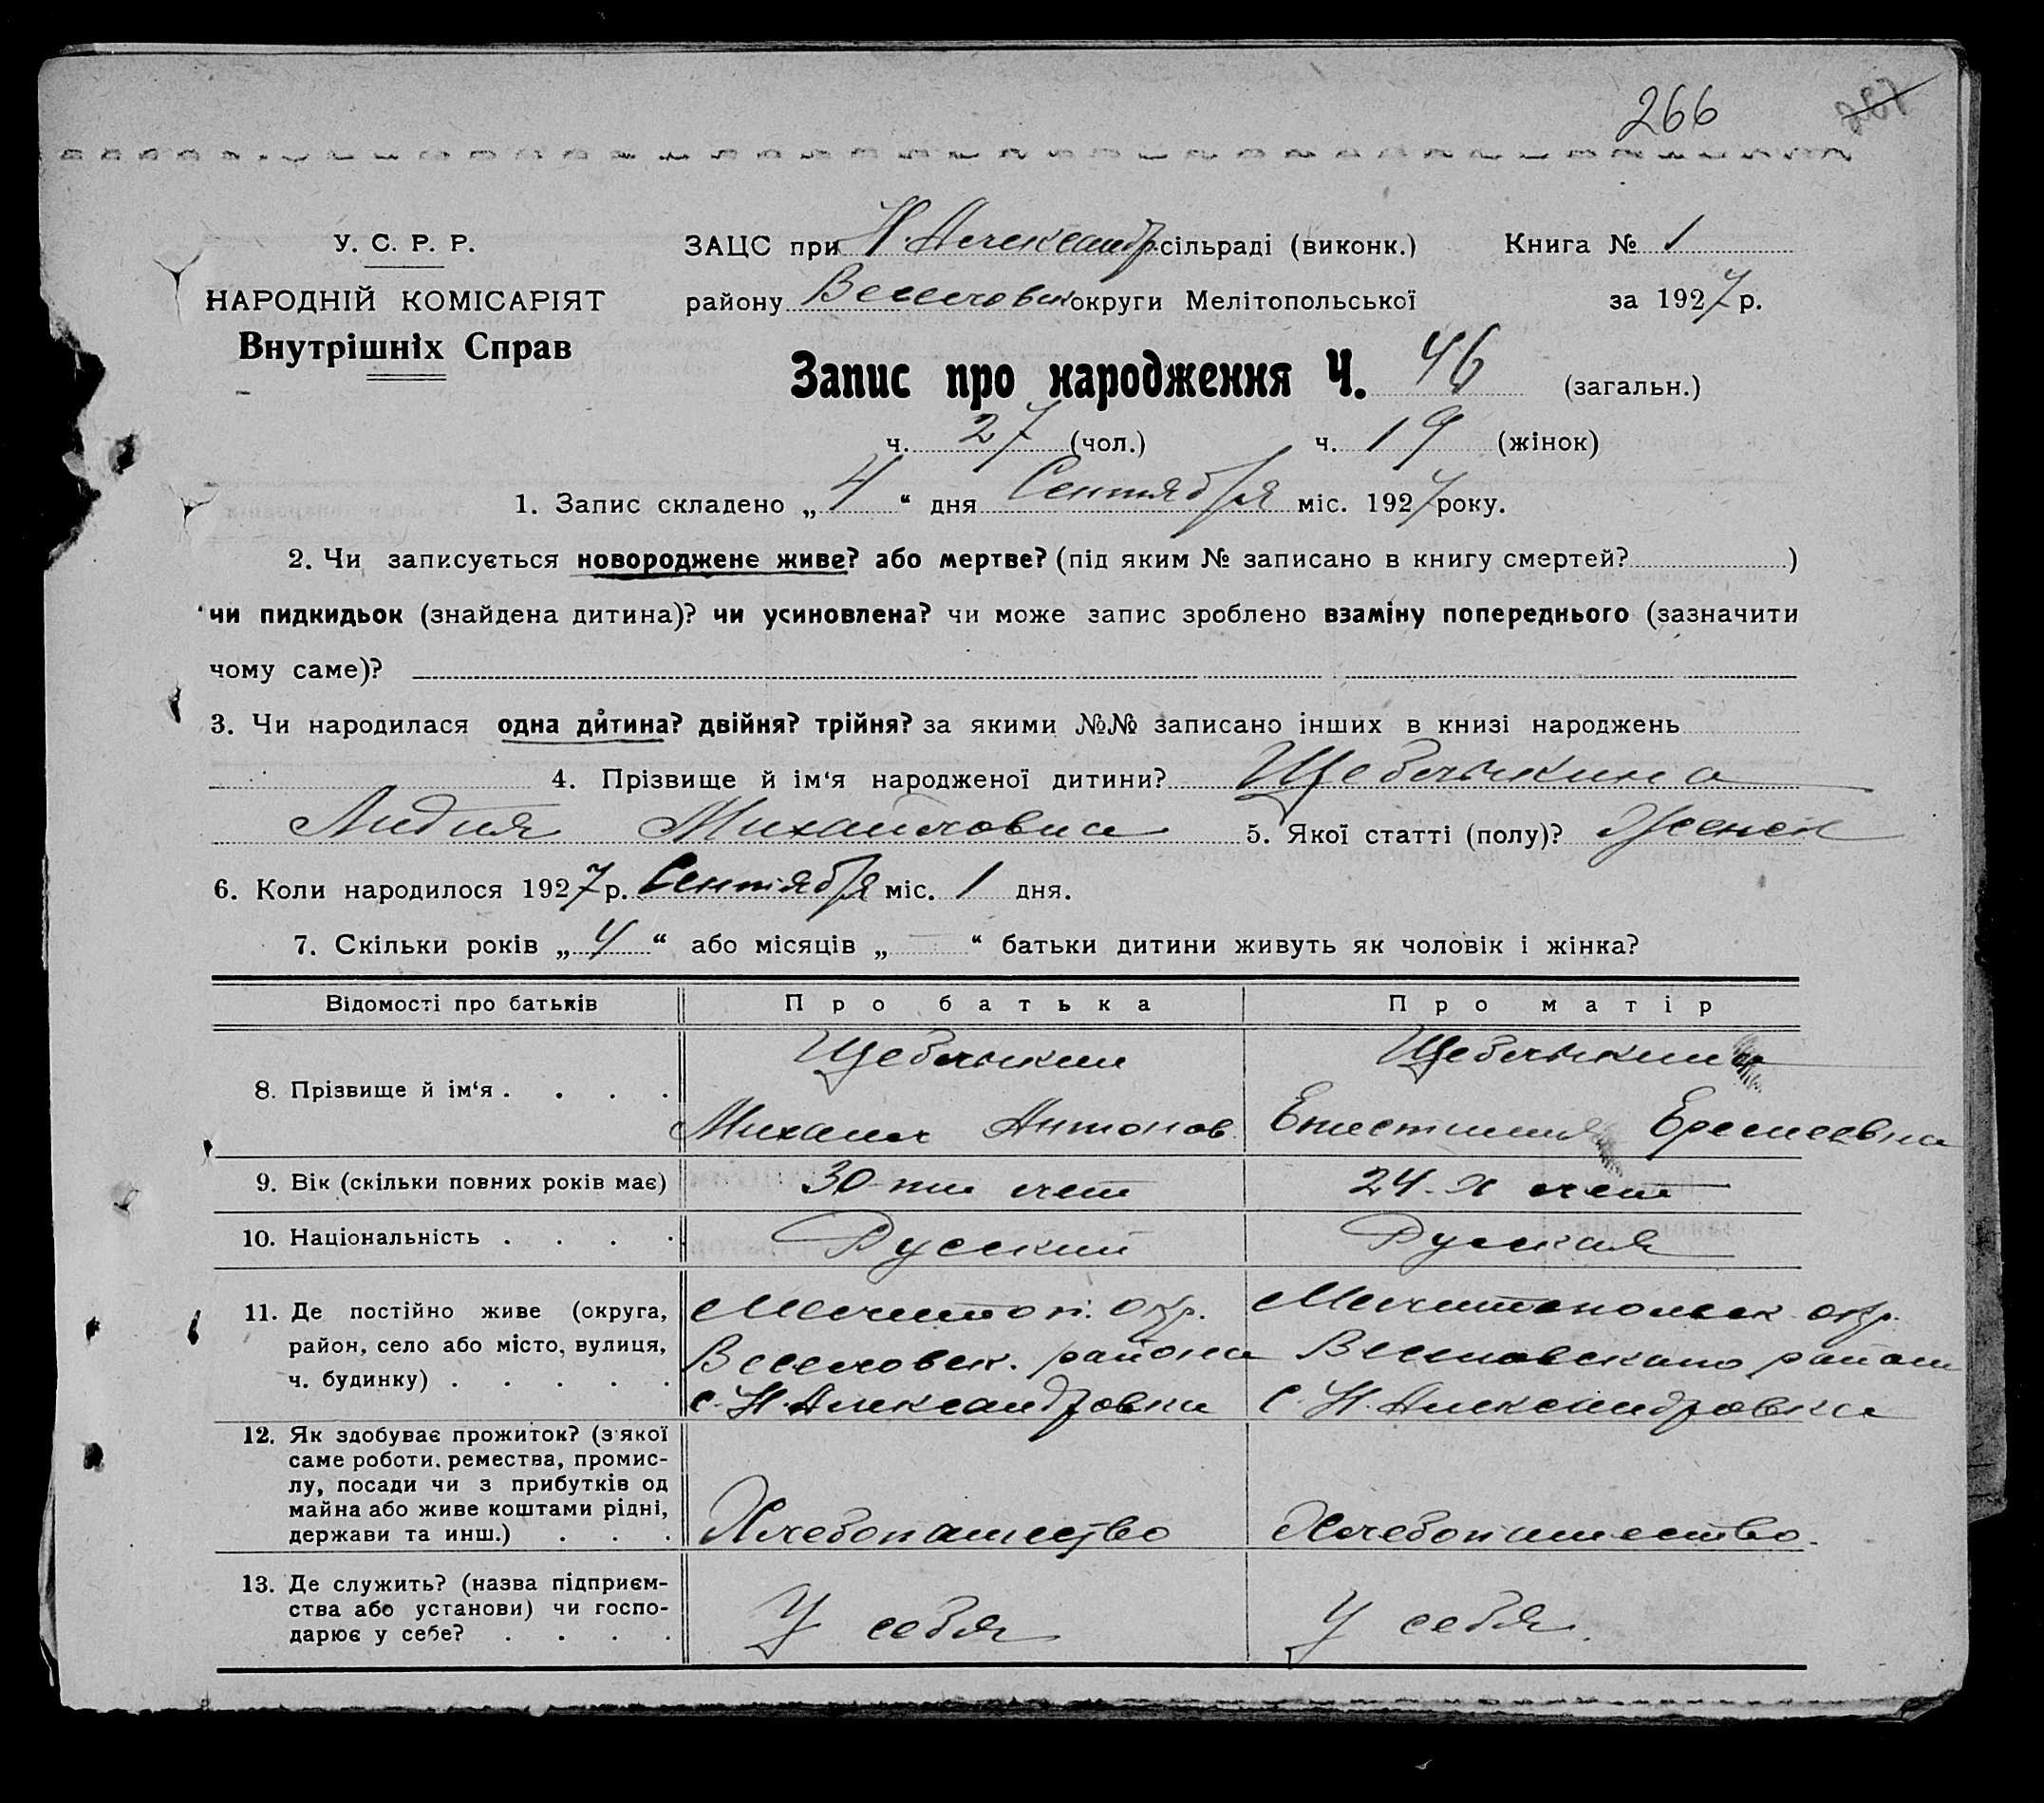 266
У. С. Р. Р.
НАРОДНІЙ КОМІСАРІЯТ
Внутрішніх Справ
ЗАЦС при Н. Александр. сільраді (виконк.) Книга № 1
району Веселовск округи Мелітопольської за 1927 р.
Запис про народження Ч. 46 (загальн.)
ч. 27 (чол.) ч. 19 (жінок)
1. Запис складено „ 4 “ дня Сентября міс. 1927 року.
2. Чи записується новороджене живе? або мертве? (під яким № записано в книгу смертей? )
чи пидкидьок (знайдена дитина)? чи усиновлена? чи може запис зроблено взаміну попереднього (зазначити
чому саме)?
3. Чи народилася одна дитина? двійня? трійня? за якими №№ записано інших в книзі народжень
4. Прізвище й ім‘я народженої дитини? Щеблыкина
Лидия Михайловна 5. Якої статті (полу)? Женск
6. Коли народилося 1927 р. Сентября міс. 1 дня.
7. Скільки років „ 4 “ або місяців „ “ батьки дитини живуть як чоловік і жінка?
Відомості про батьків Про батька Про матір
8. Прізвище й ім‘я . . . .
Щеблыкин
Михаил Антонов.
Щеблыкина
Еремеевна
9. Вік (скільки повних років має) 30-ти лет 24-х лет
10. Національність . . . . Русский Русская
11. Де постійно живе (округа,
район, село або місто, вулиця,
ч. будинку) . . . . .
Мелитоп. окр.
Веселовск. района
с. Н. Александровка
Мелитопольск окр.
Веселовскаго района
с. Н. Александровка
12. Як здобуває прожиток? (з якої
саме роботи, ремества, промис-
лу, посади чи з прибутків од
майна або живе коштами рідні,
держави та инш.) . . .
Хлебопашество
Хлебопашество.
13. Де служить? (назва підприєм-
ства або установи) чи госпо-
дарює у себе? . . . .
У себя
У себя.